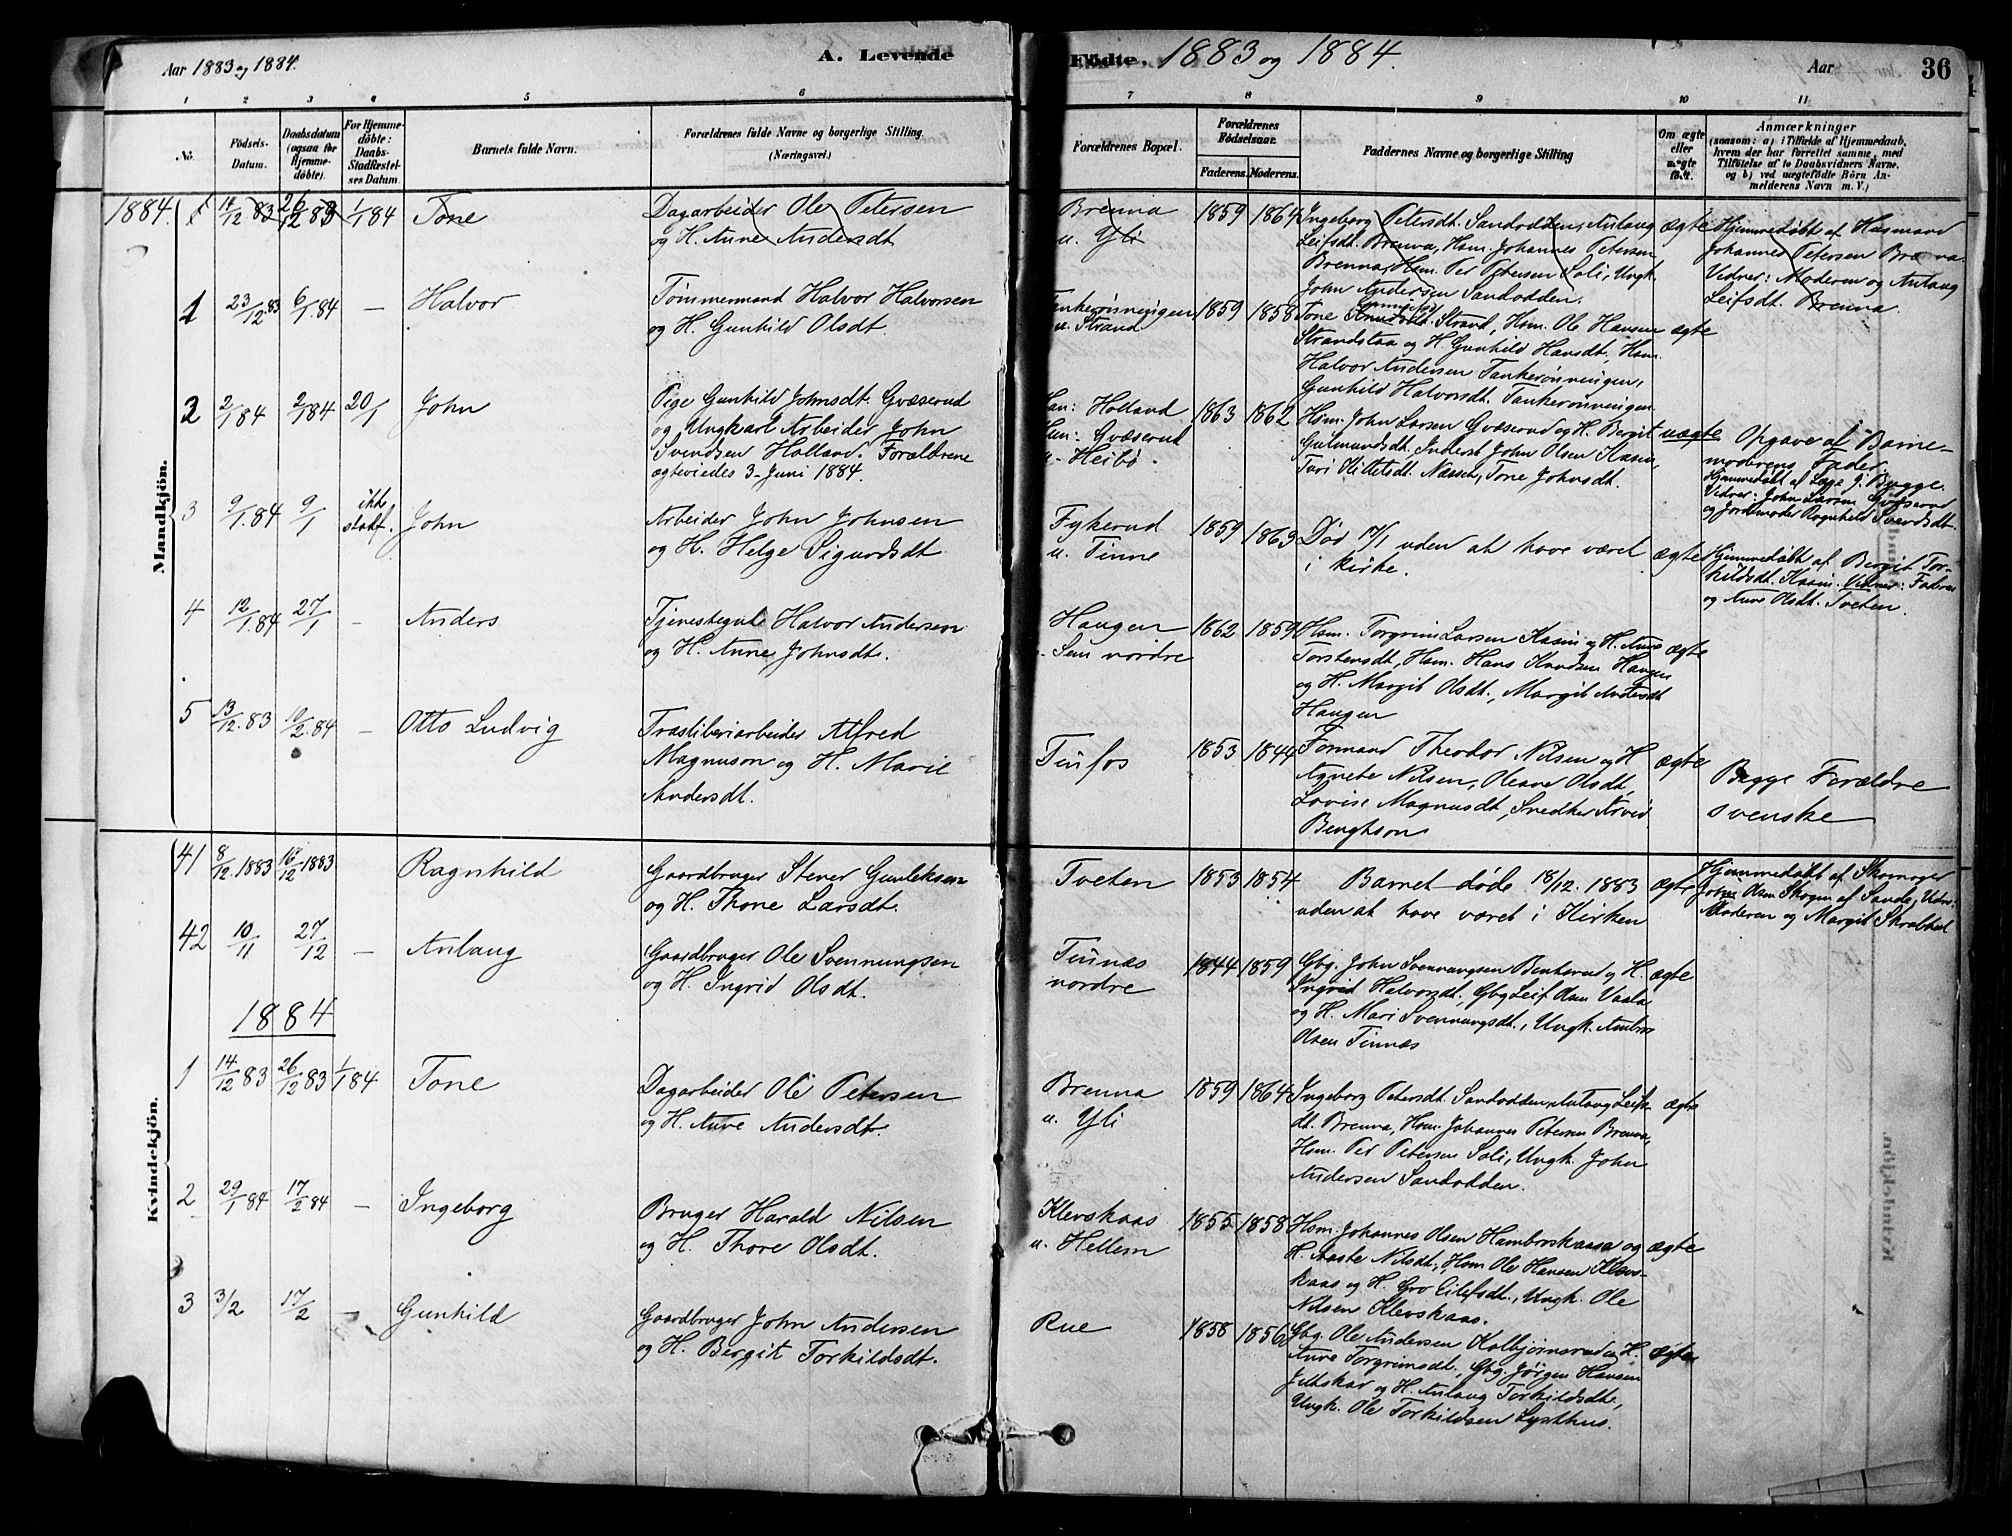 Aar 1883 og 1884.
A. Levende
Födte. 1883 og 1884.
Aar
36
1 2 3 4 5 6 7 8 9 10 11
No.
Födsels-
Datum.
Daabsdatum
(ogsaa for
Hjemme-
döbte).
For Hjemme-
döbte:
Daabs-
Stadfæstel-
ses Datum.
Barnets fulde Navn.
Forældrenes fulde Navne og borgerlige Stilling.
(Næringsvei.)
Forældrenes Bopæl.
Forældrenes
Födselsaar.
Faderens. Moderens.
Faddernes Navne og borgerlige Stilling
Om ægte
eller
uægte
født.
Anmærkninger
(saasom: a) i Tilfælde af Hjemmedaab,
hvem der har forrettet samme, med
Tilföielse af to Daabsvidners Navne,
og b) ved uægtefödte Börn An-
melderens Navn m. V.)
Mandkjön.
1884. 1 14/12 83 26/12 83 1/1 84 Tone
Dagarbeider Ole Petersen
og H. Anne Andersdt.
Brenna
u. Yli
1859 1864
Ingeborg Petersdt. Sandodden, Anlaug
Leifsdt. Brenna, Hsm. Johannes Petersen
Brenna, Hsm. Per Petersen Soli, Ungk.
John Andersen Sandodden.
ægte
Hjemmedøbt af Husmand
Johannes Petersen Brenna.
Vidner: Moderen og Anlaug
Leifsdt. Brenna.
1 23/12 83 6/1.84 – Halvor
Tømmermand Halvor Halvorsen
og H. Gunhild Olsdt.
Tankerønningen
u. Strand
1859 1858
Tone Strand, Hsm. Ole Hansen
Strandstaa og H. Gunhild Hansdt., Hsm.
Halvor Andersen Tankerønningen,
Gunhild Halvorsdt. Tankerønningen
ægte
2 2/1 84 2/1 84 20/1 John
Pige Gunhild Johnsdt. Gvæserud
og Ungkarl Arbeider John
Svendsen Holland. Forældrene
ægteviedes 3. Juni 1884.
Han: Holland
Hun: Gvæserud
u. Heibø.
1863 1862
Hsm. John Larsen Gvæserud og H. Bergit
Gulmundsdt. Inderst John Olsen Kasin,
Turi Olsdt. Næsset, Tone Johnsdt.
uægte
Opgave af Barne-
moderens Fader.
Hjemmedøbt af Læge J. Bugge.
Vidner: John Larsen Gvæserud
og Jordmoder Ragnhild Svendsdt.
3 9/1.84 9/1 ikke
stadf. John
Arbeider John Johnsen
og H. Helge Sigurdsdt
Fykerud
u. Tinne
1859 1863
Død 17/1 uden at have været
i kirke.
ægte
Hjemmedøbt af Bergit Tor-
kildsdt. Kasin. Vidner: Faderen
og Anne Olsdt. Sveten.
4 12/1.84 27/1 – Anders
Tjenestegut Halvor Andersen
og H. Anne Johnsdt.
Haugen
Sem nordre
1862 1859
Hsm. Torgrim Larsen Kasin og H. Anne
Torstensdt, Hsm. Hans Knudsen Haugen
og H. Margit Olsdt. Margit Andersdt
Haugen
ægte
5 13/12.83 10/2.84 – Otto Ludvig
Træsliberiarbeider Alfred
Magnuson og H. Marie
Andersdt.
Tinfos
1853 1844
Formand Theodor Nilsen og H
Agnete Nilsen, Oleane Olsdt,
Lovise Magnusdt, Snedker Arvid
Bengtson
ægte
Begge Forældre
svenske
Kvindekjön.
41 8/12.1883 16/12 1883 Ragnhild
Gaardbruger Stener Gunleksen
og H. Thone Larsdt.
Tveten
1853 1854
Barnet døde 18/12.1883
uden at have været i Kirken
ægte
Hjemmedøbt af Skomager
John Olsen Skogen af Sande, Vidn:
Moderen og Margit
42 10/11 27/12 – Anlaug
Gaardbruger Ole Svennungsen
og H. Ingrid Olsdt.
Tinnæs
nordre
1844 1859
Gbg. John Svennungsen Benterud og H.
Ingrid Halvorsdt. Gbg Leif Olsen Vaala
og H. Mari Svennungsdt., Ungk. Ambros
Olsen Tinnæs
ægte
1884
1 14/12 83 26/12 83 1/1 84 Tone
Dagarbeider Ole Petersen
og H. Anne Andersdt.
Brenna
u. Yli
1859 1864
Ingeborg Petersdt. Sandodden, Anlaug Leifs-
dt. Brenna, Hsm. Johannes Petersen Brenna,
Hsm. Per Petersen Soli, Ungk. John
Andersen Sandodden.
ægte
2 29/1 84 17/2 84 – Ingeborg
Bruger Harald Nilsen
og H. Thore Olsdt.
Klevskaas
u. Hellem
1855 1858
Hsm. Johannes Olsen Hambroskaasa og
H. Aaste Nilsdt., Hsm Ole Hansen Klevs-
kaas og H. Gro Eilefsdt., Ungk. Ole
Nilsen Klevskaas.
ægte
3 3/2 17/2 – Gunhild
Gaardbruger John Andersen
og H. Bergit Torkildsdt.
Rue
1858 1856
Gbg. Ole Andersen Kolbjørnsrud og H.
Anne Torgrimsdt., Gbg Jørgen Hansen
Jeltskar og H. Anlaug Torkildsdt.,
Ungk. Ole Torkildsen Lysthus.
ægte